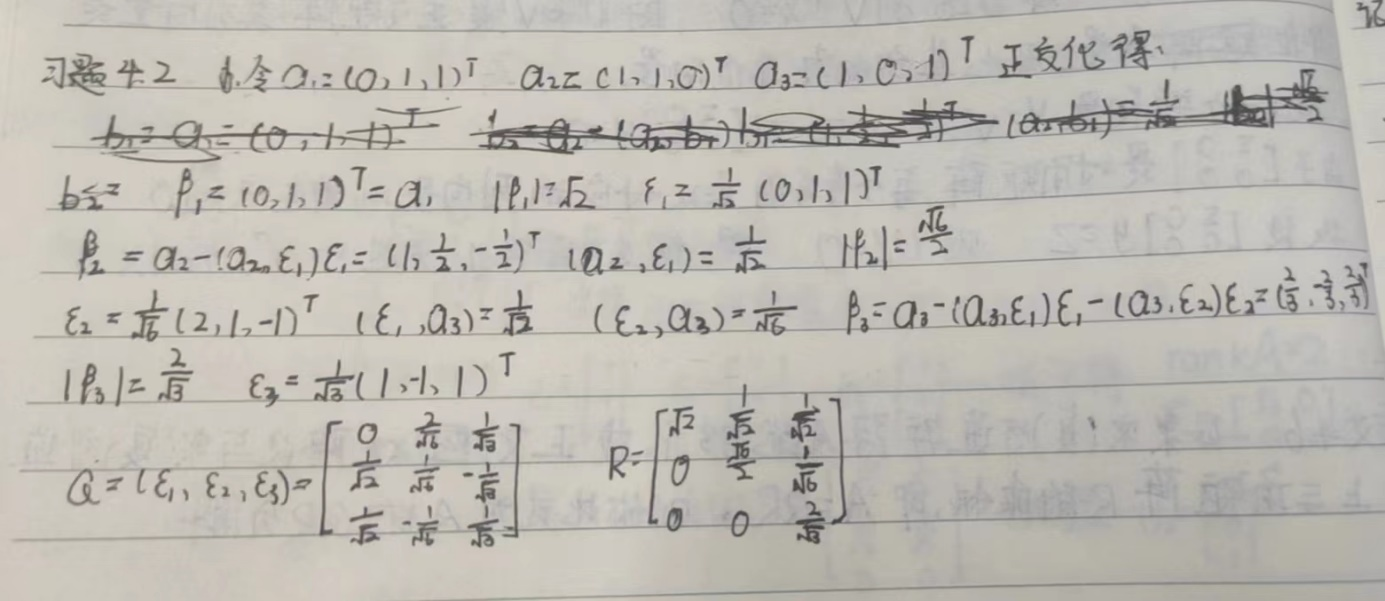 习题4.2 1.令 a₁=(0,1,1)ᵀ a₂=(1,1,0)ᵀ a₃=(1,0,1)ᵀ 正交化得.
b₂= β₁=(0,1,1)ᵀ=a₁ |β₁|=√2 ε₁=1/√2 (0,1,1)ᵀ
β₂=a₂-(a₂,ε₁)ε₁=(1,1/2,-1/2)ᵀ (a₂,ε₁)=1/√2 |β₂|=√6/2
ε₂=1/√6 (2,1,-1)ᵀ (ε₁,a₃)=1/√2 (ε₂,a₃)=1/√6 β₃=a₃-(a₃,ε₁)ε₁-(a₃,ε₂)ε₂=(2/3,-2/3,2/3)ᵀ
|β₃|=2/√3 ε₃=1/√3 (1,-1,1)ᵀ
Q=(ε₁,ε₂,ε₃)=[0 2/√6 1/√3; 1/√2 1/√6 -1/√3; 1/√2 -1/√6 1/√3] R=[√2 1/√2 1/√2; 0 √6/2 1/√6; 0 0 2/√3]